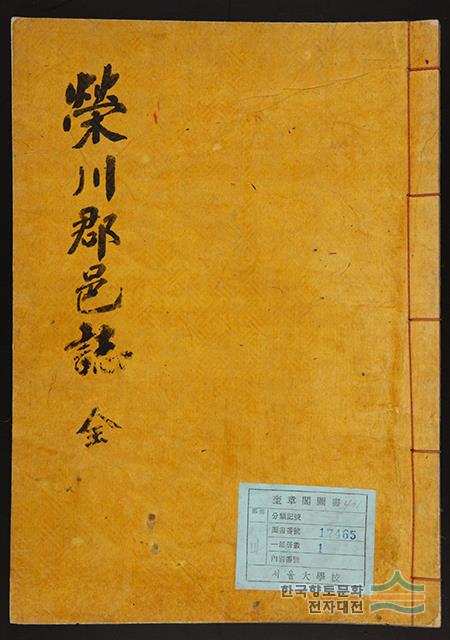 榮川郡邑誌 全
奎章閣圖書
分類記號
圖書番號 17465
一部冊數 1
內容番號
서울大學校
한국향토문화
전자대전